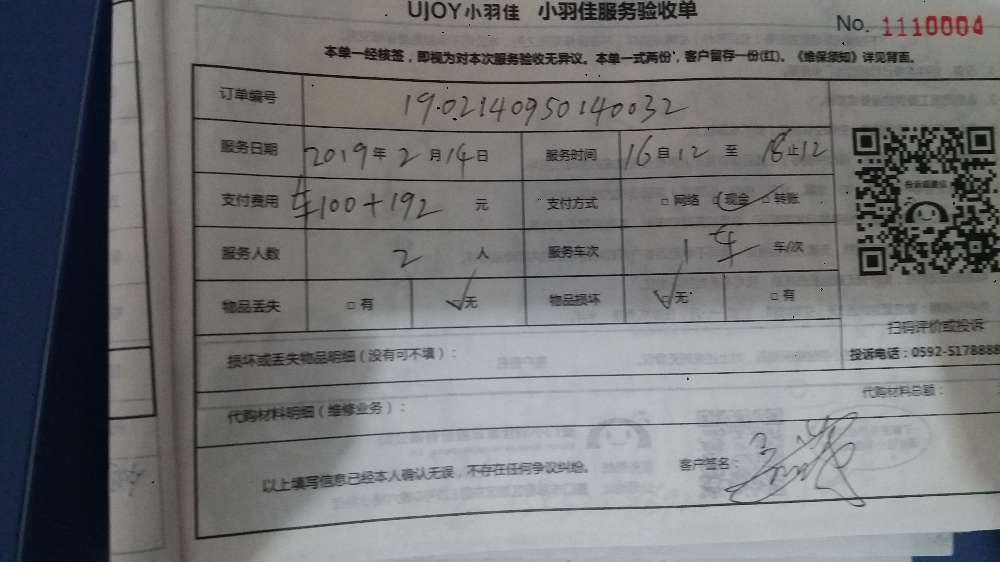 UJOY小羽佳 小羽佳服务验收单
No. 1110004
本单一经核签，即视为对本次服务验收无异议。本单一式两份，客户留存一份(红)。《维保须知》详见背面。
订单编号 19.02140950140032
服务日期 2019年2月14日 服务时间 16自12至18止12
支付费用 车100+192 元 支付方式 □网络 □现金 □转账
服务人数 2 人 服务车次 1车 车/次
物品丢失 □有 ☑无 物品损坏 ☑无 □有
扫码评价或投诉
损坏或丢失物品明细（没有可不填）： 投诉电话：0592-5178888
代购材料明细（维修业务）： 代购材料总额：
以上填写信息已经本人确认无误，不存在任何争议纠纷。 客户签名：